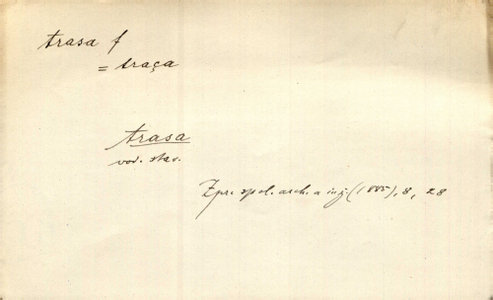 trasa f
= traça
trasa
vod. stav.
Zpr. spol. arch. a inž. (1885), 8, 28